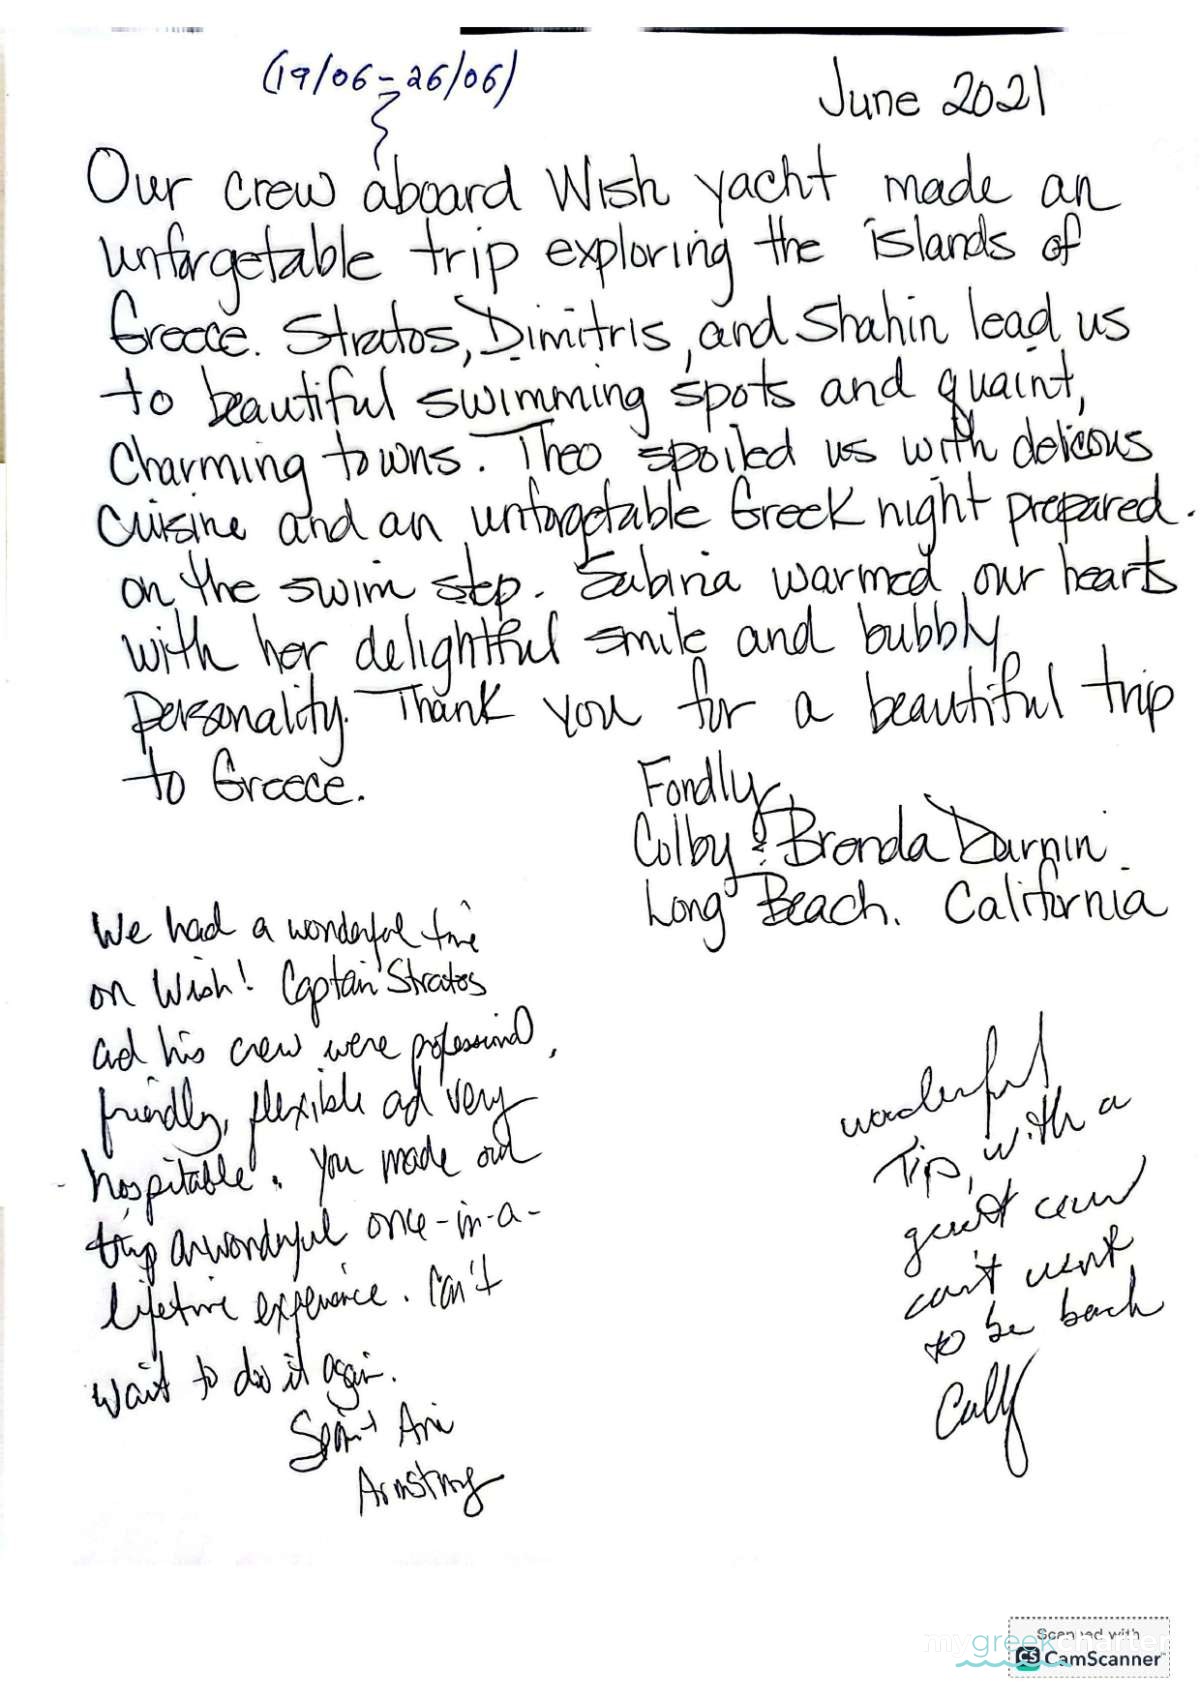 (19/06 - 26/06)
June 2021
Our crew aboard Wish yacht made an
unforgetable trip exploring the islands of
Greece. Stratos, Dimitris, and Shahin lead us
to beautiful swimming spots and quaint,
charming towns. Theo spoiled us with delicous
cuisine and an unforgetable Greek night prepared.
on the swim step. Sabina warmed our hearts
with her delightful smile and bubbly
personality. Thank you for a beautiful trip
to Greece.
Fondly,
Colby & Brenda Durnin
Long Beach. California
We had a wonderful time
on Wish! Captain Stratos
and his crew were professional,
friendly, flexible and very
hospitable. You made our
trip a wonderful once-in-a-
lifetime experience. Can't
wait to do it again.
Armstrong
wonderful
Trip, with a
great crew
can't wait
to be back
mygreekcharter
Scanned with
CS CamScanner